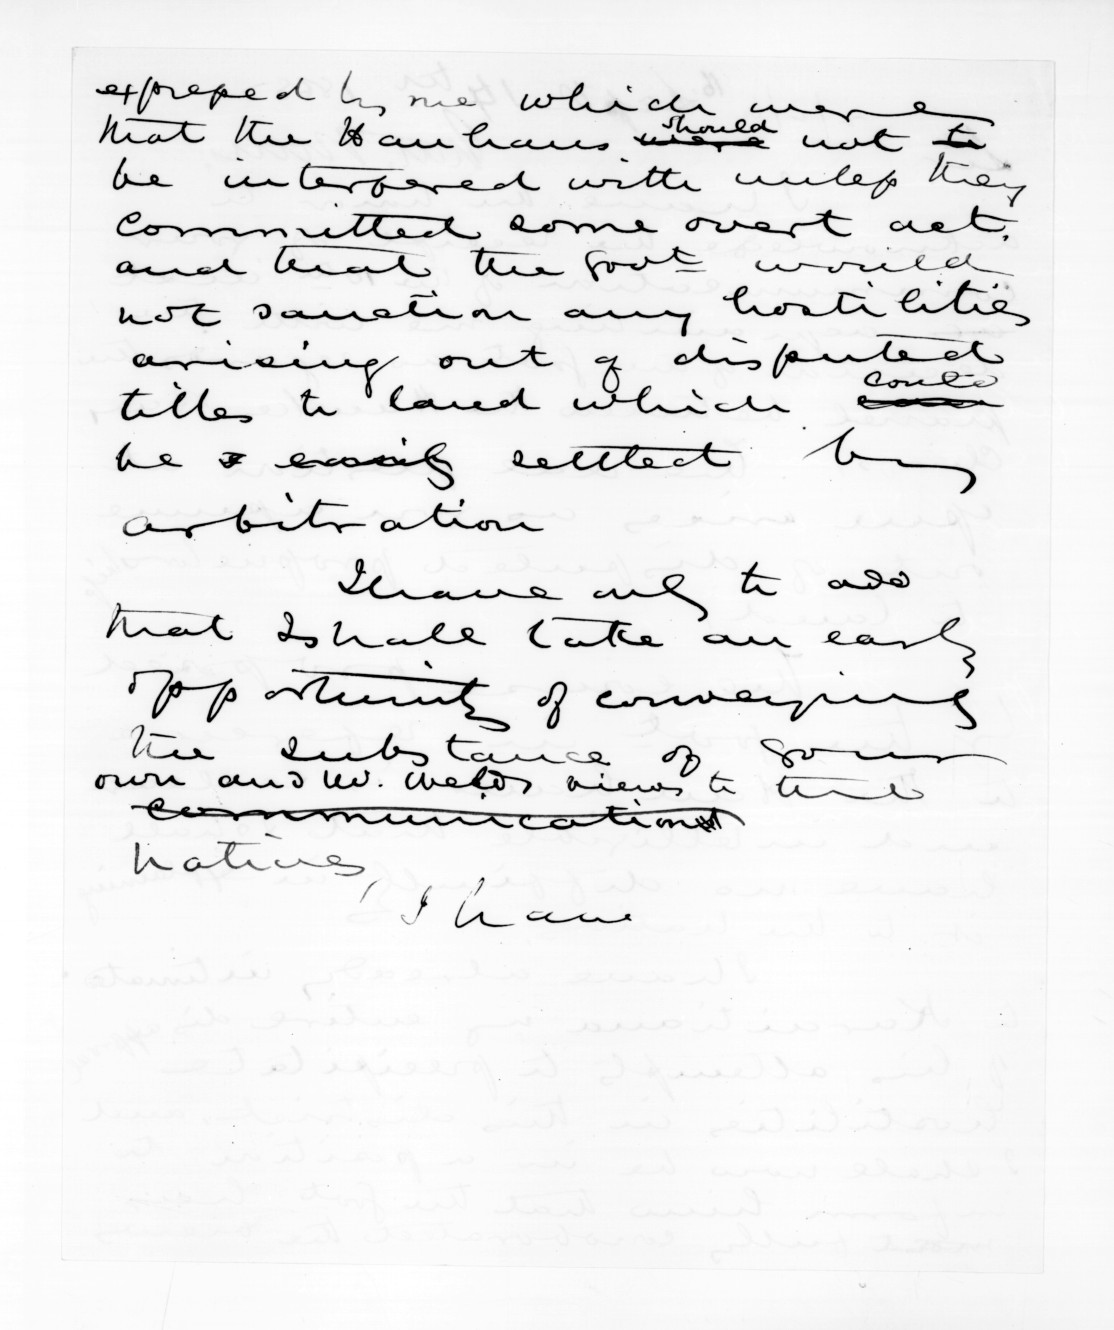 expressed by me which were
that the Hauhaus should were not to
be interfered with unless they
committed some overt act.
and that the Govt would
not sanction any hostilities
arising out of disputed
titles to land which could
be easily settled by
arbitration
I have only to add
that I shall take an early
opportunity of conveying
the substance of your
own and Mr. Weld's views to the
communication
natives,
I have